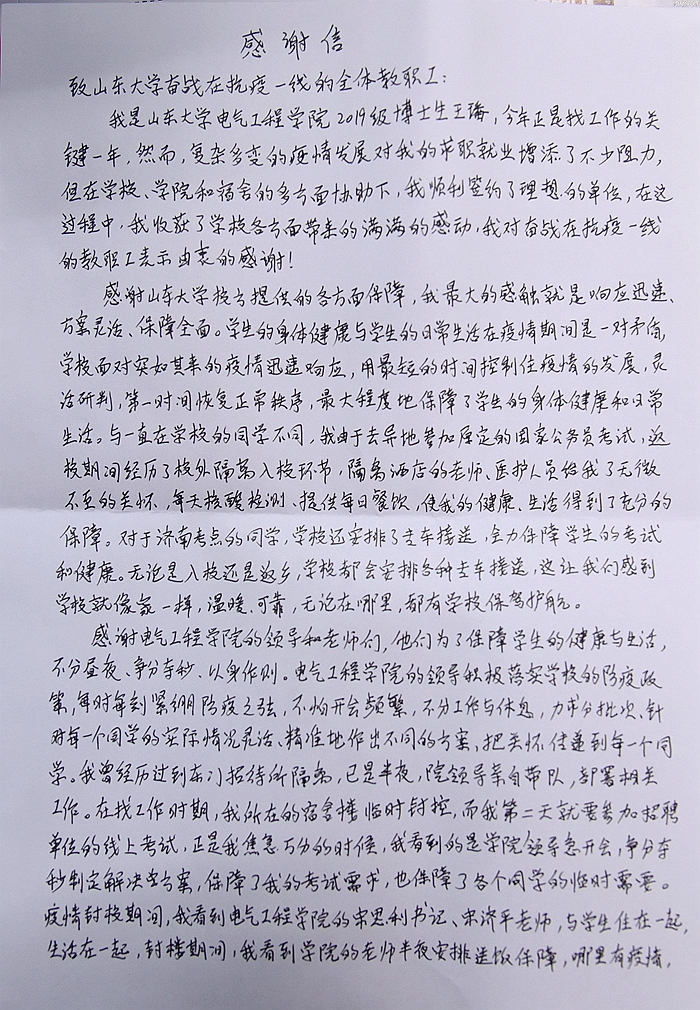 感谢信
致山东大学奋战在抗疫一线的全体教职工：
我是山东大学电气工程学院2019级博士生王瑞，今年正是找工作的关
键一年，然而，复杂多变的疫情发展对我的求职就业增添了不少阻力，
但在学校、学院和宿舍的多方面协助下，我顺利签约了理想的单位，在这
过程中，我收获了学校各方面带来的满满的感动，我对奋战在抗疫一线
的教职工表示由衷的感谢！
感谢山东大学校方提供的各方面保障，我最大的感触就是响应迅速、
方案灵活、保障全面。学生的身体健康与学生的日常生活在疫情期间是一对矛盾，
学校面对突如其来的疫情迅速响应，用最短的时间控制住疫情的发展，灵
活研判，第一时间恢复正常秩序，最大程度地保障了学生的身体健康和日常
生活。与一直在学校的同学不同，我由于去异地参加原定的国家公务员考试，返
校期间经历了校外隔离入校环节，隔离酒店的老师、医护人员给我了无微
不至的关怀，每天核酸检测、提供每日餐饮，使我的健康、生活得到了充分的
保障。对于济南考点的同学，学校还安排了专车接送，全力保障学生的考试
和健康。无论是入校还是返乡，学校都会安排各种专车接送，这让我们感到
学校就像家一样，温暖、可靠，无论在哪里，都有学校保驾护航。
感谢电气工程学院的领导和老师们，他们为了保障学生的健康与生活，
不分昼夜、争分夺秒、以身作则。电气工程学院的领导积极落实学校的防疫政
策，每时每刻紧绷防疫之弦，不怕开会频繁，不分工作与休息，力求分批次、针
对每一个同学的实际情况灵活、精准地作出不同的方案，把关怀传递到每一个同
学。我曾经历过到东门招待所隔离，已是半夜，院领导亲自带队，部署相关
工作。在找工作时期，我所在的宿舍楼临时封控，而我第二天就要参加招聘
单位的线上考试，正是我焦急万分的时候，我看到的是学院领导急开会，争分夺
秒制定解决方案，保障了我的考试需求，也保障了各个同学的临时需要。
疫情封校期间，我看到电气工程学院的宋思利书记、宋济平老师，与学生住在一起，
生活在一起，封楼期间，我看到学院的老师半夜安排送饭保障，哪里有疫情，